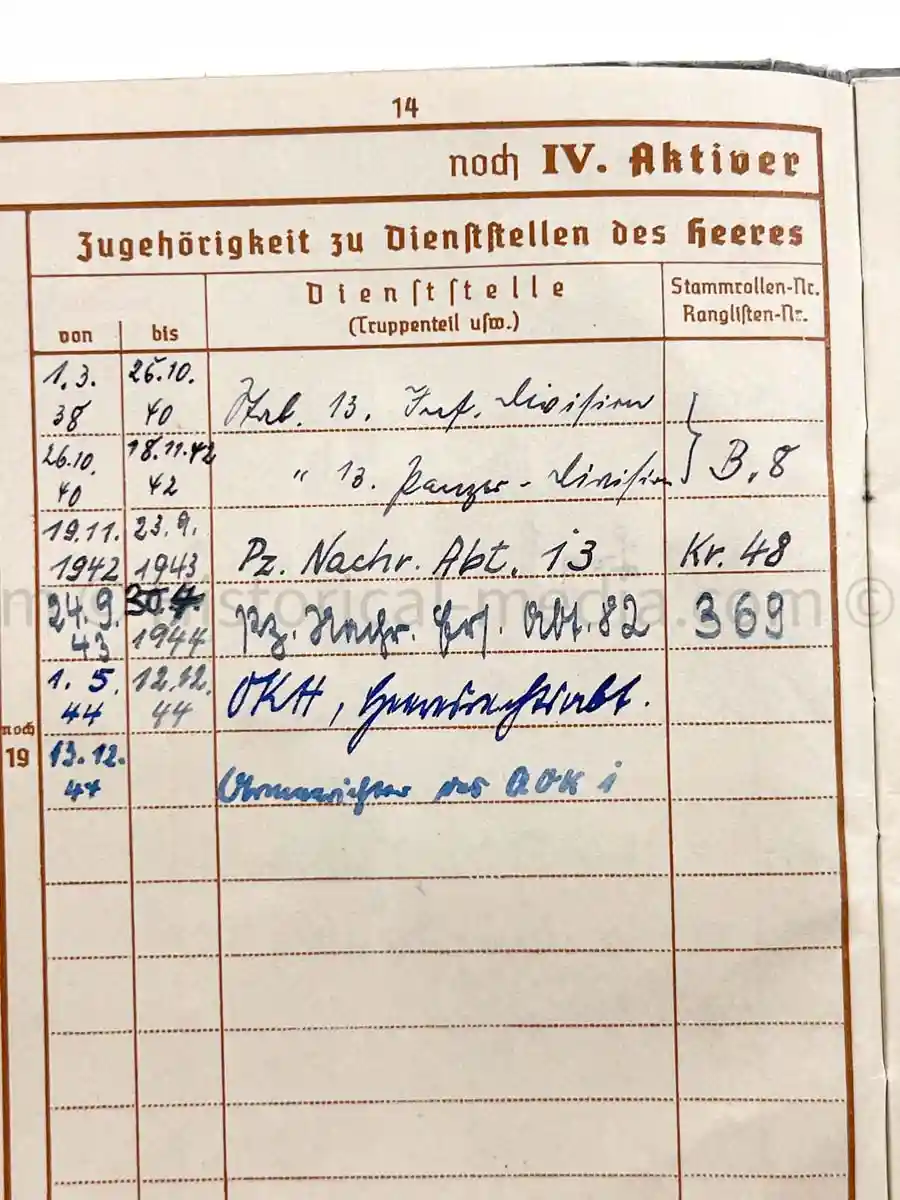 14
noch IV. Aktiver
Zugehörigkeit zu Dienststellen des Heeres
von bis
Dienststelle
(Truppenteil usw.)
Stammrollen-Nr.
Ranglisten-Nr.
1.3. 26.10.
38 40 Stab. 13. Inf. Division
26.10. 18.11.42
40 42 " 13. Panzer-Division } B. 8
19.11. 23.9.
1942 1943 Pz. Nachr. Abt. 13 Kr. 48
24.9. 30.4.
43 1944 Pz. Nachr. Ers. Abt. 82 369
1.5. 12.12.
44 44 OKH, Heeresrechtsabt.
noch
19 13.12.
44 des AOK 1
historical-media.com ©